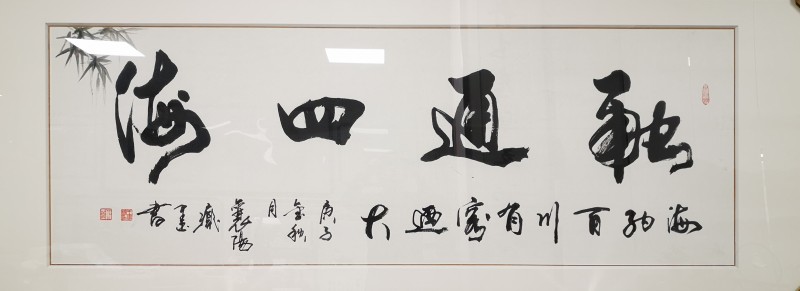 融通四海
海纳百川有容迺大
庚子
金秋
月
襄陽
書